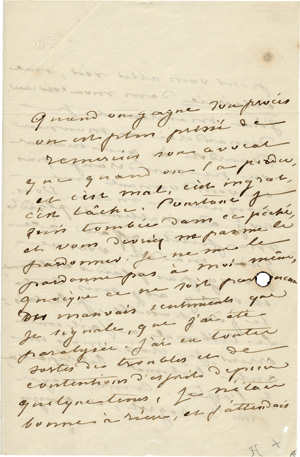 Quand on gagne son procès
on est plus pressé de
remercier son avocat
que quand on l'a perdu,
et c'est mal, c'est ingrat,
c'est lâche. Pourtant je
suis tombée dans ce péché,
et vous devriez me le
pardonner. Je ne me le
pardonne pas à moi-même,
quoique ce ne soit pas
mauvais sentiments, que
je signale, que j'ai été
paralysée. J'ai eu toutes
sortes de troubles et de
contentions d'esprit depuis
quelque tems, je n'étais
bonne à rien, et j'attendais